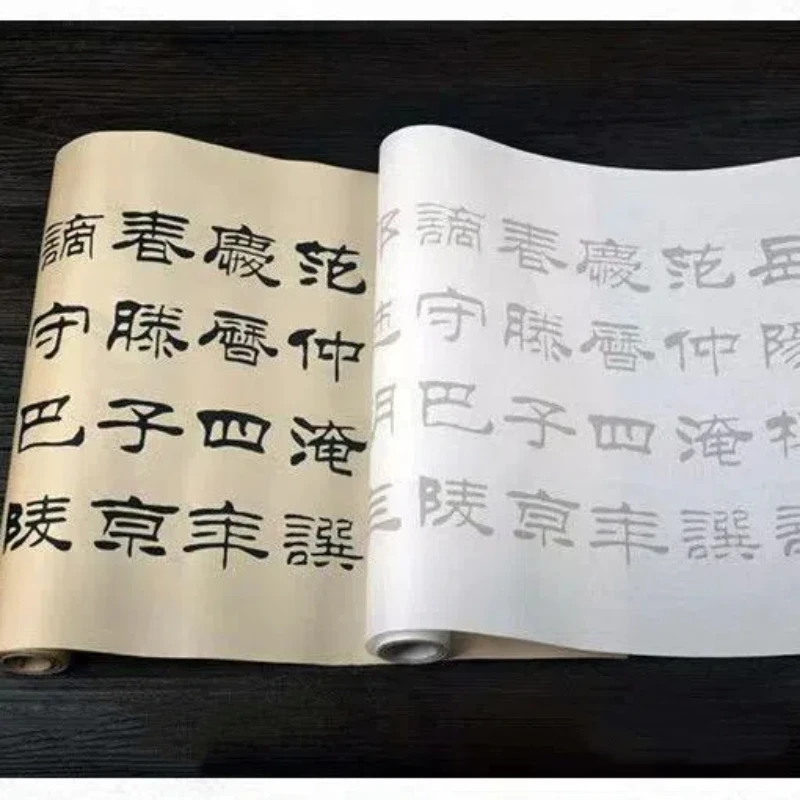 岳陽
范仲淹譔
慶曆四年
春滕子京
謫守巴陵
范仲淹譔
慶曆四年
春滕子京
謫守巴陵